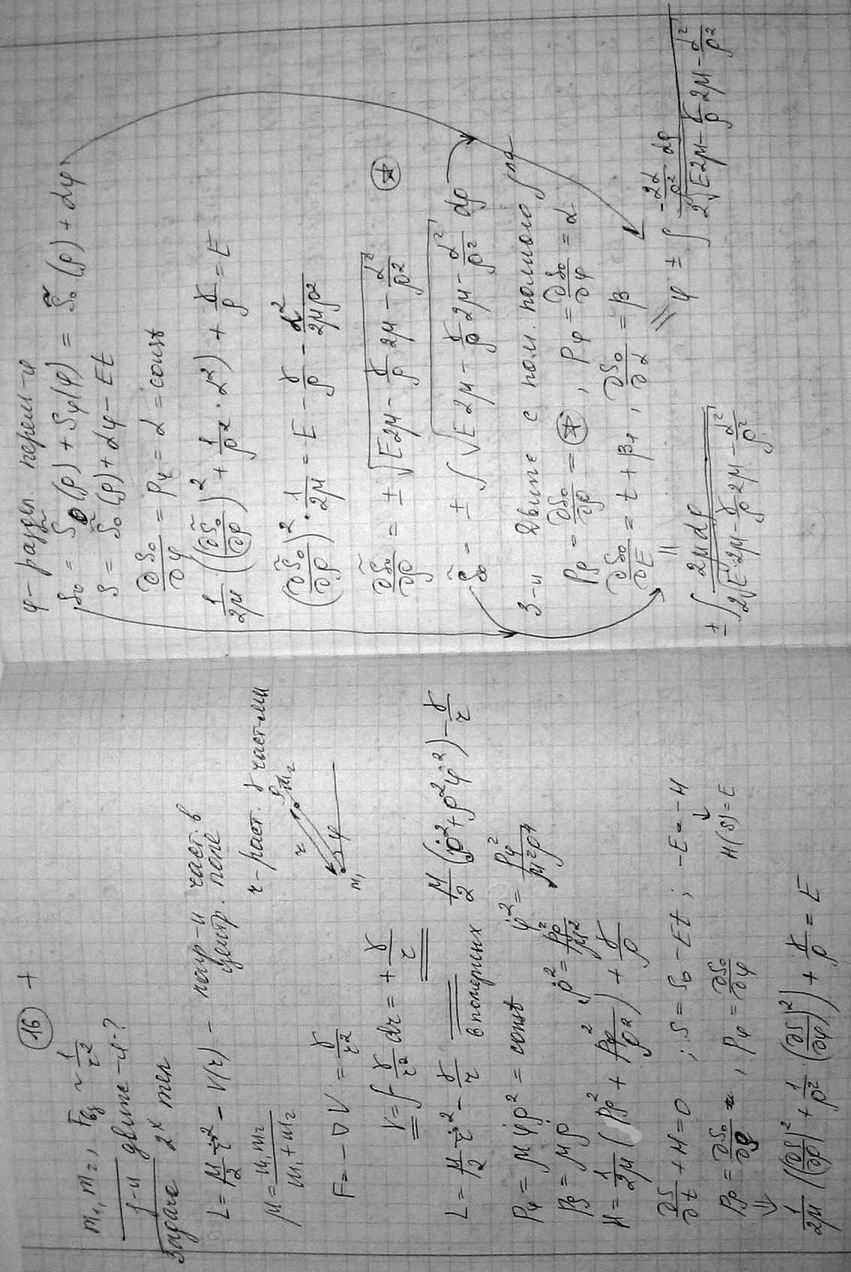 16 +
m₁, m₂, F_вз ~ 1/r²
з-н движ-я - ?
Задача 2ˣ тел
L = μ/2 ṙ² - V(r) - част. в центр. поле
μ = m₁m₂/(m₁+m₂)
r - раст. част-ми
r φ m₁ m₂
F = -∇V = γ/r²
V = -∫ γ/r² dr = + γ/r
L = μ/2 ṙ² - γ/r = μ/2 (ρ̇² + ρ²φ̇²) - γ/r
в полярных
P_φ = μφ̇ρ² = const φ̇² = P_φ²/μ²ρ⁴
P_ρ = μρ̇ , ρ̇² = P_ρ²/μ²
H = 1/2μ (P_ρ² + P_φ²/ρ²) + γ/ρ
∂S/∂t + H = 0 ; S = S₀ - Et ; -E = -H
↓
P_ρ = ∂S₀/∂ρ , P_φ = ∂S₀/∂φ H(S) = E
⇓
1/2μ ((∂S/∂ρ)² + 1/ρ² · (∂S/∂φ)²) + γ/ρ = E
φ - разд. перем-я
S₀ = S̃₀(ρ) + S_φ(φ) = S̃₀(ρ) + αφ
S = S̃₀(ρ) + αφ - Et
∂S₀/∂φ = P_φ = α = const
1/2μ ((∂S̃₀/∂ρ)² + 1/ρ² · α²) + γ/ρ = E
(∂S̃₀/∂ρ)² · 1/2μ = E - γ/ρ - α²/2μρ²
∂S̃₀/∂ρ = ± √(E2μ - γ/ρ 2μ - α²/ρ²) (*)
S̃₀ = ± ∫ √(E2μ - γ/ρ 2μ - α²/ρ²) dρ
З-н движ с пом. полного ∫ла
P_ρ = ∂S₀/∂ρ = (*) , P_φ = ∂S₀/∂φ = α
∂S₀/∂E = t + β₁ , ∂S₀/∂α = β
‖ ‖
± ∫ 2μdρ / 2√(E·2μ - γ/ρ 2μ - α²/ρ²) φ ± ∫ (-2α/ρ² dρ) / 2√(E2μ - γ/ρ 2μ - α²/ρ²)